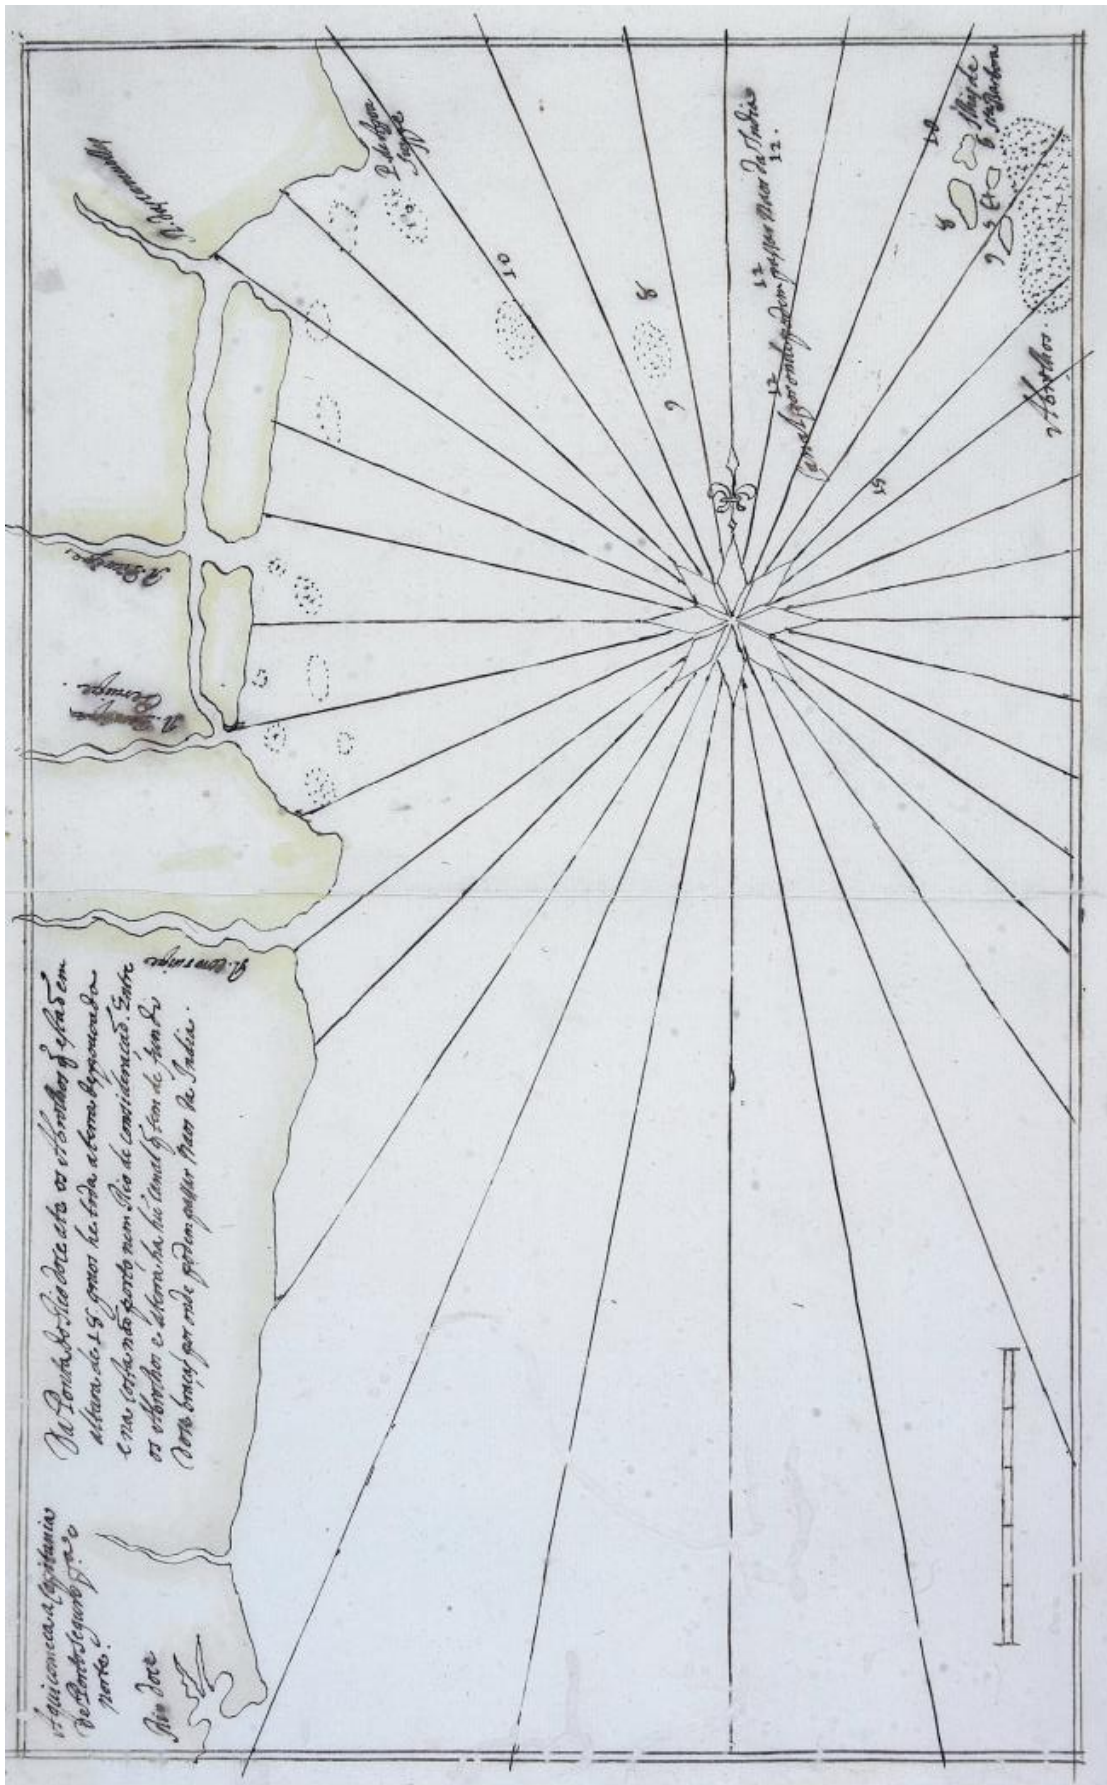 Aqui comeca a Capitania
de Porto Seguro pa o
norte.
Rio doce
Da Ponta do Rio doce ate os Abrolhos q̃ estaõ em
altura de 18 graos he toda a terra despouoada
e na costa não porto nem Rio de consideracaõ. Entre
os Abrolhos e aterra ha hũ canal q̃ tem de fundo
doze bracas por onde podem passar Naos da India.
R.
R.
R.
R.
P. de
10
8
9
12
12
12
12
Canal por onde podem passar Naos da India
15
10
8
6
5
6
Ilhas de
sta Barbora
Abrolhos